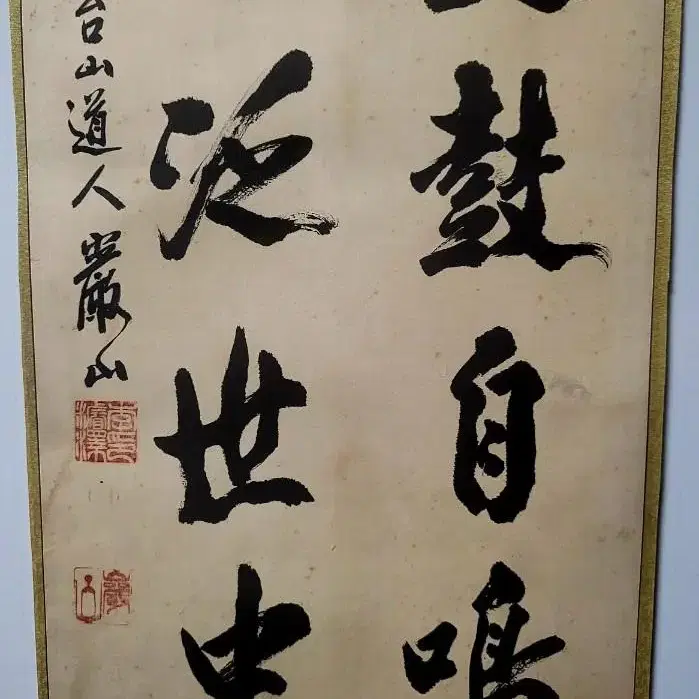 鼓自鳴
泛世
台山道人巖山